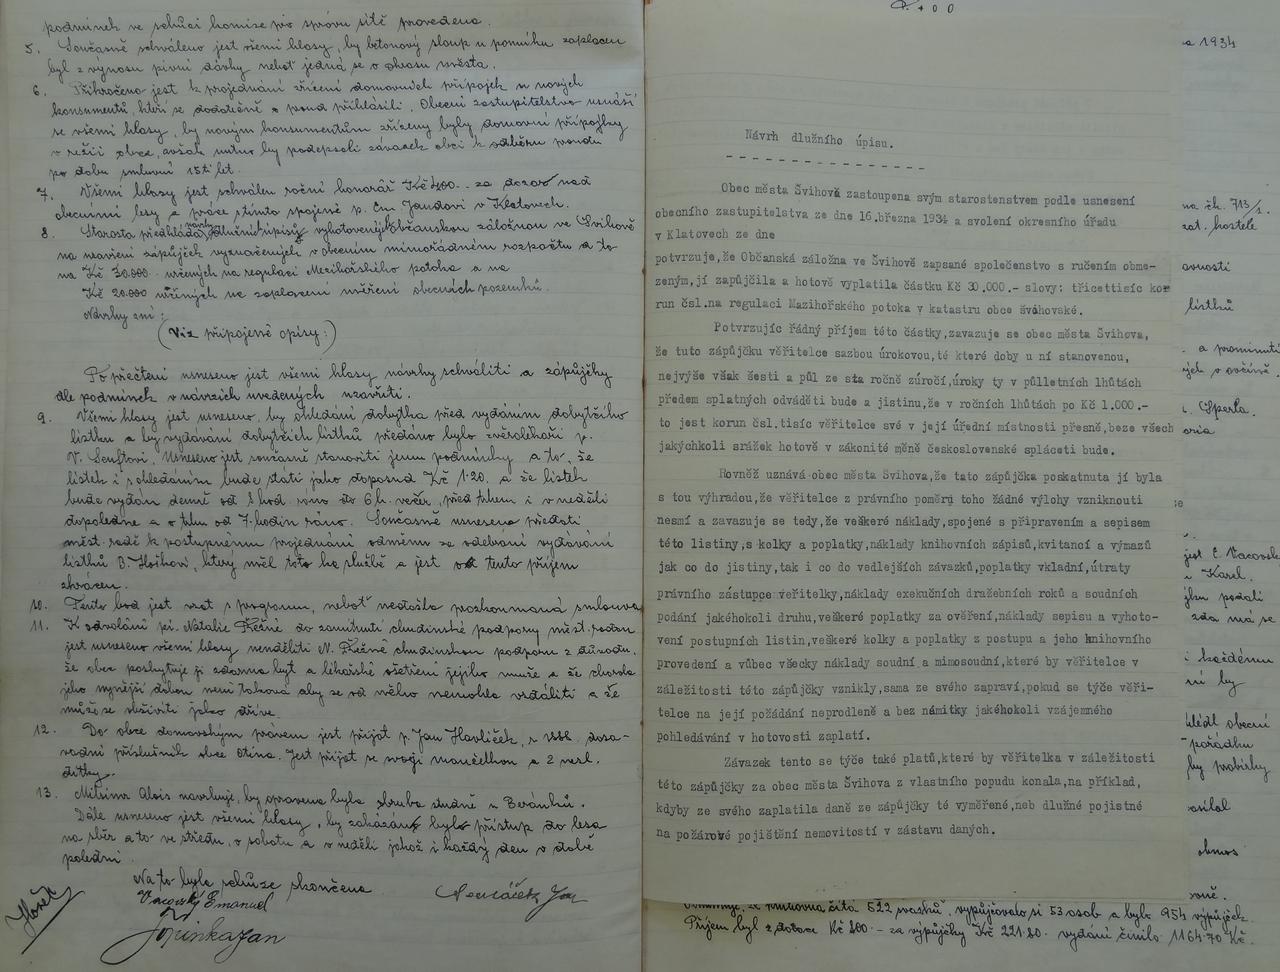 podmínek ve schůzi komise pro správu sítě provedena.
5. Současně schváleno jest všemi hlasy, by betonový sloup u pomníku zaplacen
byl z výnosu pivní dávky neboť jedná se o okrasu města.
6. Přikročeno jest k projednání zřízení domovních přípojek u nových
konsumentů, kteří se dodatečně o proud přihlásili. Obecní zastupitelstvo usnáší
se všemi hlasy, by novým konsumentům zřízeny byly domovní přípojky
v režii obce, avšak nutno by podepsali závazek obci k odběru proudu
po dobu smluvní 15ti let.
7. Všemi hlasy jest schválen roční honorář Kč 400.- za dozor nad
obecními lesy a práce s tímto spojené p. Em. Jandovi v Klatovech.
8. Starosta předkládá návrhy dlužních úpisů vyhotovených Občanskou záložnou ve Švihově
na uzavření zápůjček vyznačených v obecním mimořádném rozpočtu a to
na Kč 30.000 určených na regulaci Mezihořského potoka a na
Kč 20.000 určených na zaplacení měření obecních pozemků.
Návrhy zní:
(Viz připojené opisy:)
Po přečtení usneseno jest všemi hlasy návrhy schváliti a zápůjčky
dle podmínek v návrzích uvedených uzavříti.
9. Všemi hlasy jest usneseno, by ohledání dobytka před vydáním dobytčího
lístku a by vydávání dobytčích lístků předáno bylo zvěrolékaři p.
V. Senftovi. Usneseno jest současně stanoviti jemu podmínky a to, že
lístek i s ohledáním bude státi jako doposud Kč 1.20 a že lístek
bude vydán denně od 8 hod. ráno do 6 h. večer, před trhem i v neděli
dopoledne a o trhu od 7. hodin ráno. Současně usneseno předati
měst. radě k postupnému projednání odměnu za odebrání vydávání
lístků B. Hoškovi, který měl toto ho službě a jest o tento příjem
zkrácen.
10. Tento bod jest vzat s programu, neboť nedošla proskoumaná smlouva.
11. K odvolání pí. Natalie Řežné do zamítnutí chudinské podpory měst. radou
jest usneseno všemi hlasy neuděliti N. Řežné chudinskou podporu z důvodu,
že obec poskytuje jí zdarma byt a lékařské ošetření jejího muže a že choroba
jeho nynější dobou není taková aby se od něho nemohla vzdáliti a že
může se obživiti jako dříve.
12. Do obce domovským právem jest přijat p. Jan Havlíček, n. 1888 dosa-
vadní příslušník obce Otína. Jest přijat se svojí manželkou a 2 nezl.
dítky.
13. Milsimr Alois navrhuje, by opravena byla obruba studně u Beránků.
Dále usneseno jest všemi hlasy, by zakázán byl přístup do lesa
na sběr a to ve středu, v sobotu a v neděli jakož i každý den v době
polední.
Na to byla schůze skončena.
Vacovský Emanuel
Jan
Návrh dlužního úpisu.
- - - - - - - - - - - - - - -
Obec města Švihova zastoupena svým starostenstvem podle usnesení
obecního zastupitelstva ze dne 16.března 1934 a svolení okresního úřadu
v Klatovech ze dne
potvrzuje,že Občanská záložna ve Švihově zapsané společenstvo s ručením obme-
zeným,jí zapůjčila a hotově vyplatila částku Kč 30.000.- slovy: třicettisíc ko-
run čsl.na regulaci Mazihořského potoka v katastru obce švihovské.
Potvrzujíc řádný příjem této částky,zavazuje se obec města Švihova,
že tuto zápůjčku věřitelce sazbou úrokovou,té které doby u ní stanovenou,
nejvýše však šesti a půl ze sta ročně zúročí,úroky ty v půlletních lhůtách
předem splatných odváděti bude a jistinu,že v ročních lhůtách po Kč 1.000.-
to jest korun čsl.tisíc věřitelce své v její úřední místnosti přesně,beze všech
jakýchkoli srážek hotově v zákonité měně československé spláceti bude.
Rovněž uznává obec města Švihova,že tato zápůjčka poskatnuta jí byla
s tou výhradou,že věřitelce z právního poměru toho žádné výlohy vzniknouti
nesmí a zavazuje se tedy,že veškeré náklady,spojené s připravením a sepisem
této listiny,s kolky a poplatky,náklady knihovních zápisů,kvitancí a výmazů
jak co do jistiny,tak i co do vedlejších závazků,poplatky vkladní,útraty
právního zástupce věřitelky,náklady exekučních dražebních roků a soudních
podání jakéhokoli druhu,veškeré poplatky za ověření,náklady sepisu a vyhoto-
vení postupních listin,veškeré kolky a poplatky z postupu a jeho knihovního
provedení a vůbec všecky náklady soudní a mimosoudní,které by věřitelce v
záležitosti této zápůjčky vznikly,sama ze svého zapraví,pokud se týče věři-
telce na její požádání neprodleně a bez námitky jakéhokoli vzájemného
pohledávání v hotovosti zaplatí.
Závazek tento se týče také platů,které by věřitelka v záležitosti
této zápůjčky za obec města Švihova z vlastního popudu konala,na příklad,
kdyby ze svého zaplatila daně ze zápůjčky té vyměřené,neb dlužné pojistné
na požárové pojištění nemovitostí v zástavu daných.
1934
na čk. 713/1.
hostele
lístků
a prominutí
Sperla.
jest E. Vacovský
Karel.
podali
zda má se
každému
by
obecní
pořádku
by probírky
oknos
knihovna čítá 522 svazků, vypůjčovalo si 53 osob a bylo 954 výpůjček.
Příjem byl z dotace Kč 800.- za výpůjčky Kč 221.80. vydání činilo 1164.70 Kč.